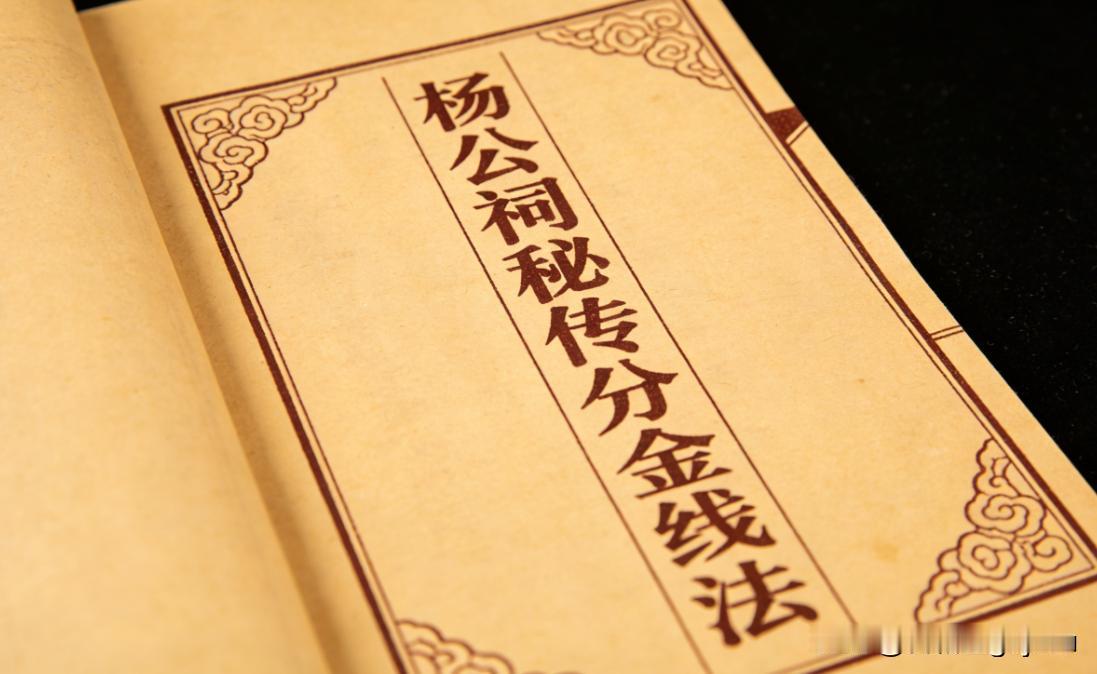 杨公祠秘传分金线法